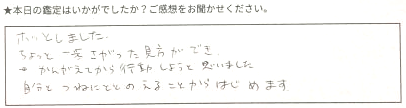 ★本日の鑑定はいかがでしたか?ご感想をお聞かせください。
ホッとしました。
ちょっと一歩さがった見方ができ、
→ かんがえてから行動しようと思いました
自分をつねにととのえることからはじめます